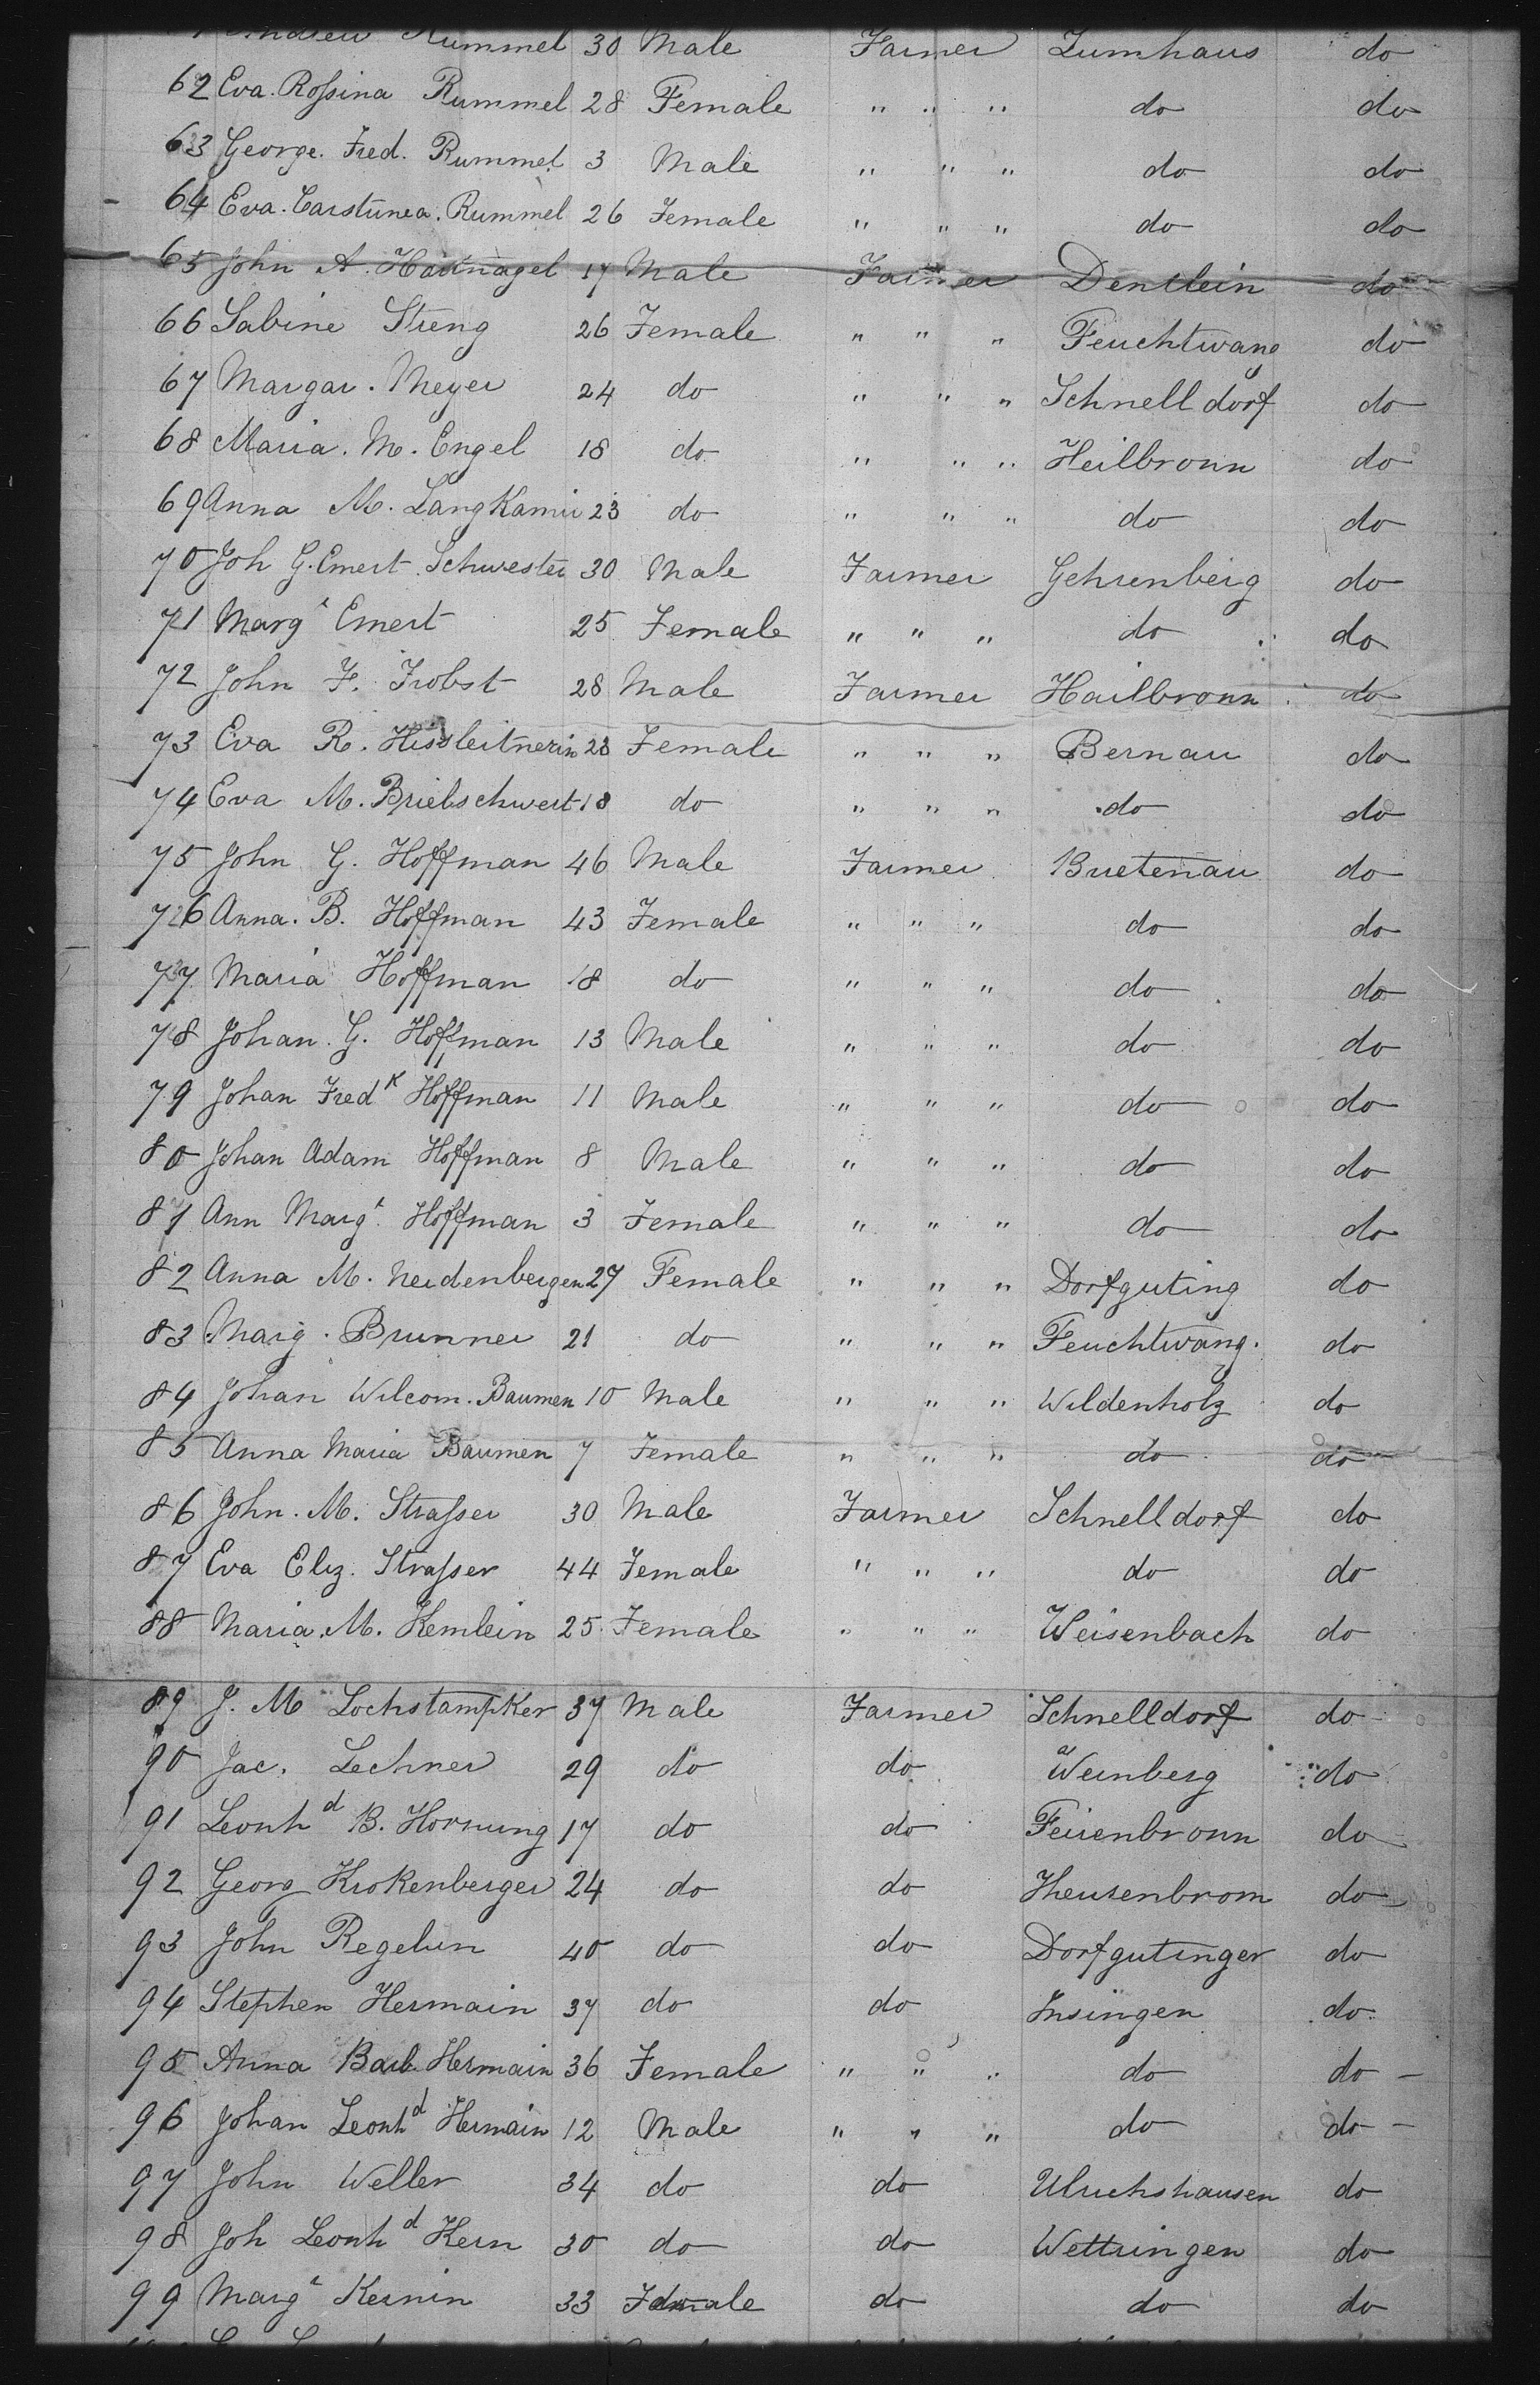 Rummel 30 Male Farmer Zumhaus do
62 Eva. Rossina Rummel 28 Female " " " do do
63 George. Fred. Rummel 3 Male " " " do do
64 Eva. Carstunea. Rummel 26 Female " " " do do
65 John A. Haunagel 17 Male Farmer Dentlein do
66 Sabine Streng 26 Female " " " Feuchtwang do
67 Margar. Meyer 24 do " " " Schnelldorf do
68 Maria. M. Engel 18 do " " " Heilbronn do
69 Anna M. 23 do " " " do do
70 Joh G. Emert Schwester 30 Male Farmer Gehrenberg do
71 Margt Emert 25 Female " " " do do
72 John F. Trobst 28 Male Farmer Hailbronn do
73 Eva R. Hissleitnerin 28 Female " " " Bernau do
74 Eva M. Briebschwert 18 do " " " do do
75 John G. Hoffman 46 Male Farmer Bretenau do
76 Anna. B. Hoffman 43 Female " " " do do
77 Maria Hoffman 18 do " " " do do
78 Johan. G. Hoffman 13 Male " " " do do
79 Johan Fredk Hoffman 11 Male " " " do do
80 Johan Adam Hoffman 8 Male " " " do do
81 Ann Margt. Hoffman 3 Female " " " do do
82 Anna M. Neidenbergen 27 Female " " " Dorfguting do
83 Marg. Brunner 21 do " " " Feuchtwang. do
84 Johan Wilcom. Baumen 10 Male " " " Wildenholz do
85 Anna Maria Baumen 7 Female " " " do do
86 John. M. Strasser 30 Male Farmer Schnelldorf do
87 Eva Eliz. Strasser 44 Female " " " do do
88 Maria. M. Kemlein 25 Female " " " Weisenbach do
89 J. M Lochstampker 37 Male Farmer Schnelldorf do
90 Jac. Lechner 29 do do Weinberg do
91 Leonhd B. Hornung 17 do do Feirenbronn do
92 Georg Krokenberger 24 do do do
93 John Regelin 40 do do Dorfgutinger do
94 Stephen Hermain 37 do do Insingen do
95 Anna Barb. Hermain 36 Female " " " do do
96 Johan Leonhd Hermain 12 Male " " " do do
97 John Weller 34 do do Ulrichshausen do
98 Joh Leonhd Kern 30 do do Wettringen do
99 Margt Kernin 33 Female do do do